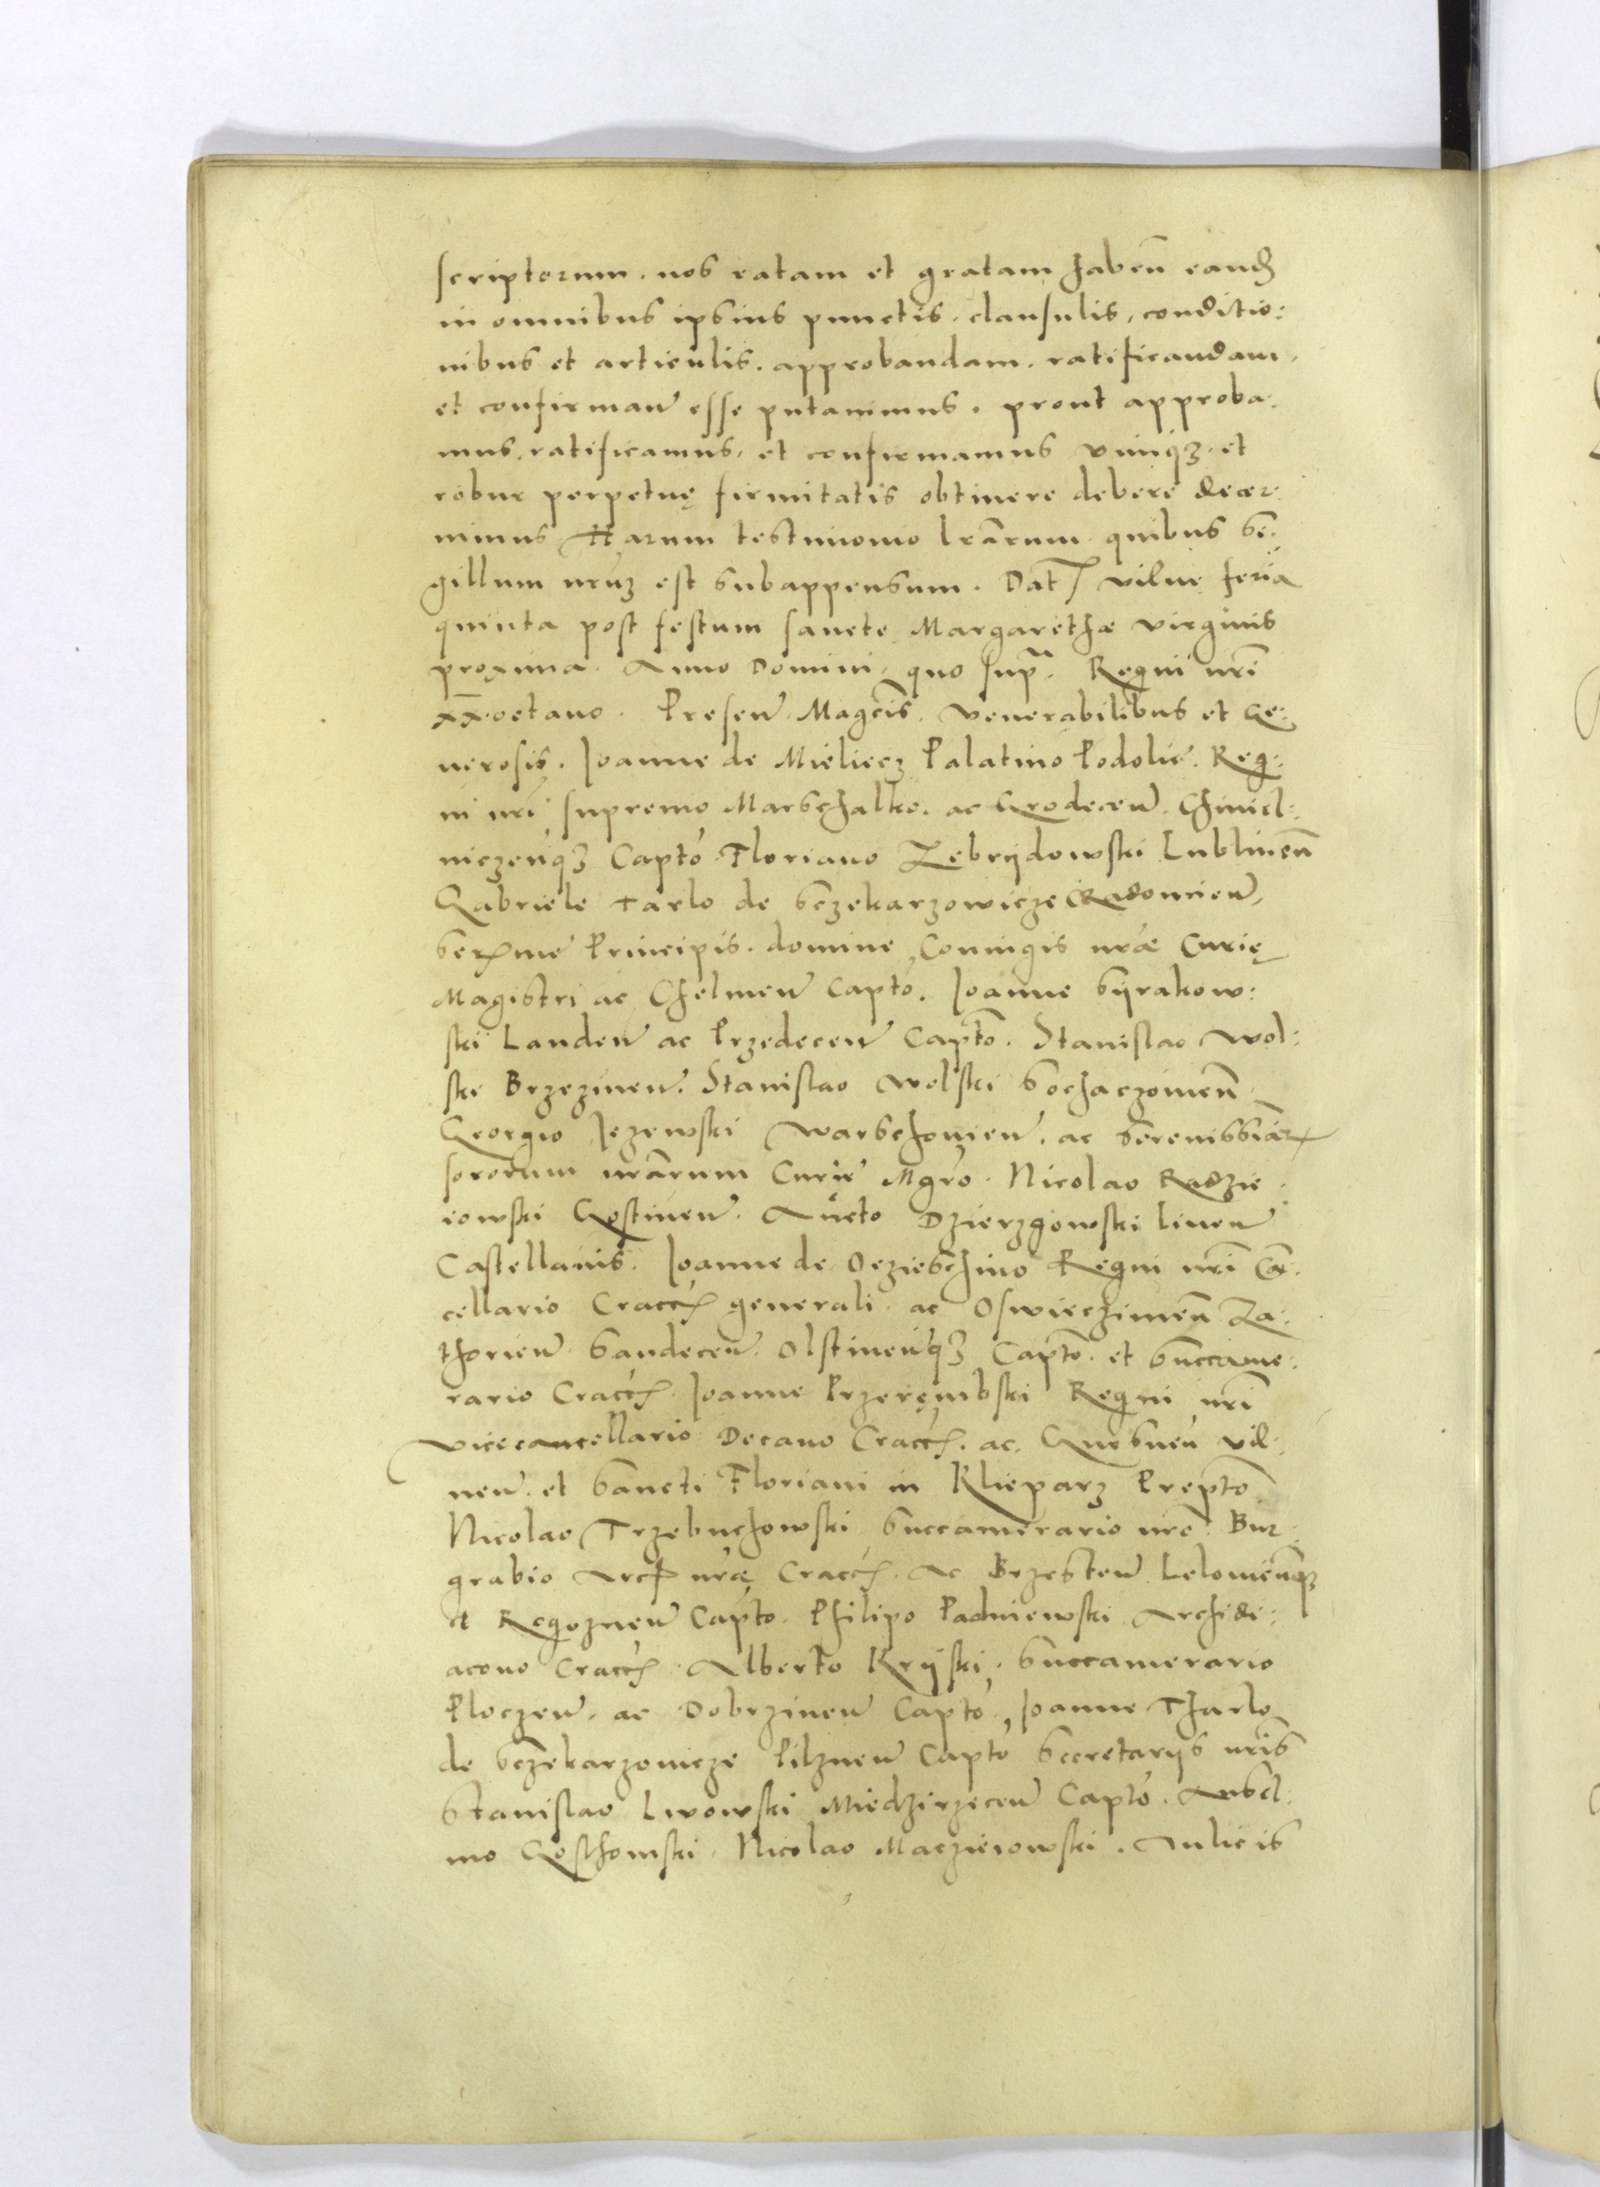 scriptorum. nos ratam et gratam habeñ eand̃
in omnibus ipsius punctis, clausulis, conditio:
nibus et articulis. approbandam. ratificandam,
et confirmañ esse putavimus. prout approba:
mus. ratificamus, et confirmamus vimqz et
robur perpetuę firmitatis obtinere debere decer:
nimus Harum testimonio lrãrum quibus Si:
gillum nrũz est subappensum. Dat vilnę feria
quinta post festum sancte Margarethæ virginis
proxima. Anno Domini, quo sup̃. Regni nrĩ
xx octavo. Preseñ. Magcĩs. Venerabilibus et Ge:
nerosis. Joanne de Mieliecz Palatino Podolię. Reg:
ni nrĩ supremo Marschalko. ac Grodeceñ. Chmiel:
niczeñqz Capto Floriano Zebrijdowski Lublineñ
Gabriele Tarlo de Sczekarzowicze Radomieñ,
Serme Principis. domine Coniugis nræ Curię
Magistri ac Chelmeñ Capto. Joanne Sijrakow:
ski Landeñ ac Przedeceñ Capto. Stanislao Wol:
ski Brzezineñ. Stanislao Wolski Sochaczovieñ
Georgio Jezewski Warschovieñ. ac Serenissiãr
sororum nrãrum Curię Mgro. Nicolao Radzie
iowski Gostineñ. Aucto Dzierzgowski Liveñ
Castellanis. Joanne de Oczieschino Regni nrĩ Can:
cellario Cracc̃ generali. ac Oswieczimeñ Za:
thorieñ Sandeceñ. Olstineñqz Capto. et Succame:
rario Cracc̃. Joanne Przerembski Regni nrĩ
vicecancellario Decano Cracc̃. ac Gnesneñ vil:
neñ. et Sancti Floriani in Klieparz Prepto
Nicolao Trzebuchowski Succamerario nro. Bur
grabio Arc̃ nræ Cracc̃. Ac Brzesteñ Leloviẽnqz
et Regozneñ Capto. Philipo Padniewski Archidi:
acono Cracc̃. Alberto Krijski. Succamerario
Ploczeñ. ac Dobrzineñ Capto. Joanne Tharlo
de Sczekarzovicze Pilzneñ Capto Secretarijs nrĩs
Stanislao Lwowski Miedzirzeceñ Capto. Ansel:
mo Gosthomski. Nicolao Macziejowski. Aulicis